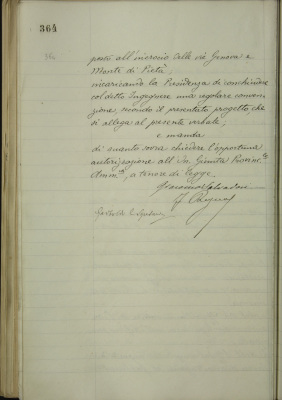 364
posti all'incrocio delle vie Genova e
Monte di Pietà;
incaricando la Presidenza di conchiudere
col detto Ingegnere una regolare conven-
zione, secondo il presentato progetto, che
si allega al presente verbale;
e manda
di quanto sovra chiedere l'opportuna
autorizzazione all'On. Giunta Provin.le
Amm.va, a tenore di legge.